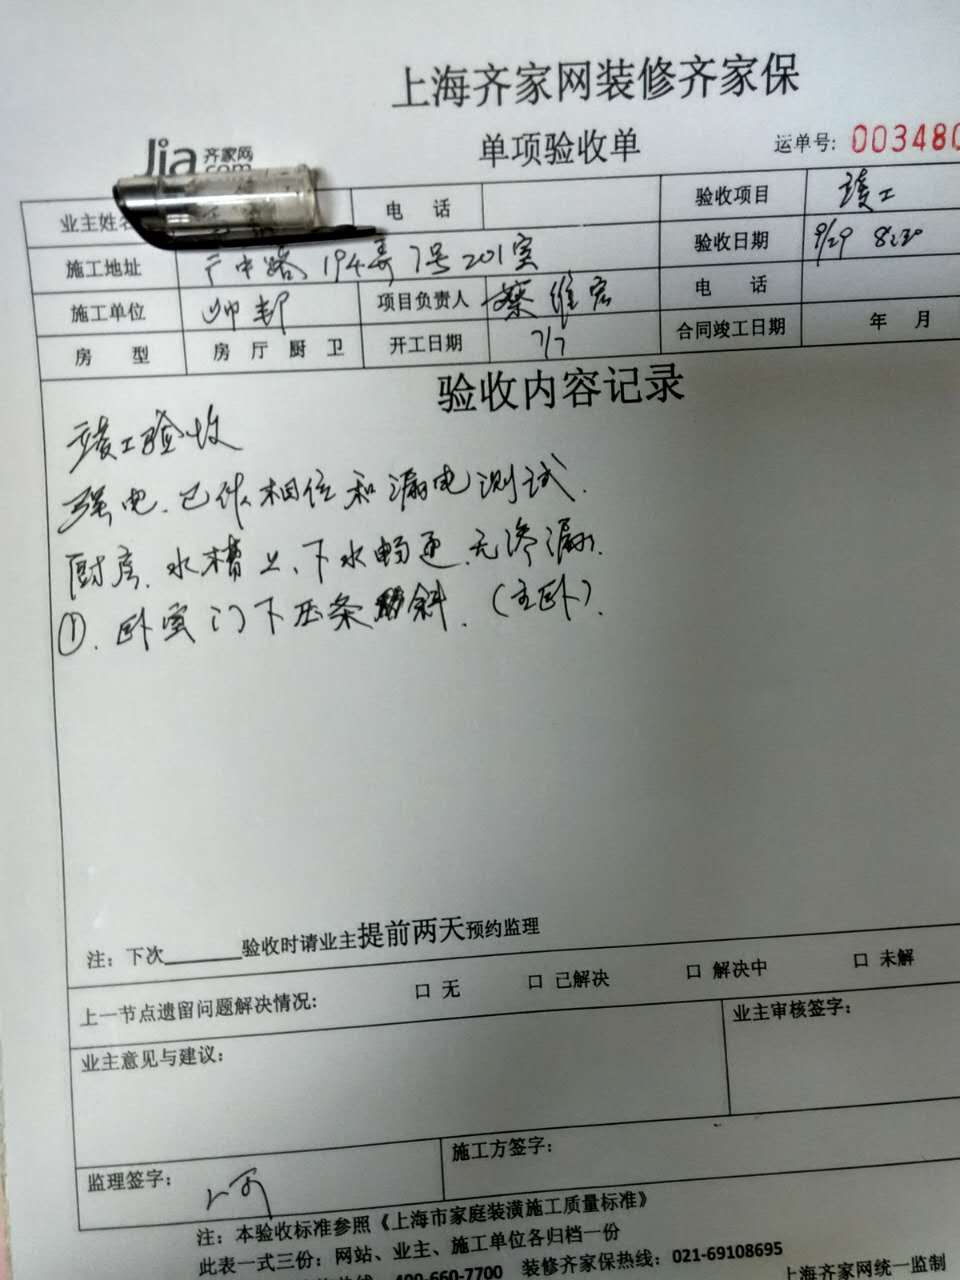 上海齐家网装修齐家保
Jia 齐家网
.com
单项验收单
运单号: 003480
业主姓名 电 话 验收项目 竣工
施工地址 广中路194弄7号201室 验收日期 9/29 8:30
施工单位 帅邦 项目负责人 蔡维宏 电 话
房 型 房 厅 厨 卫 开工日期 7/7 合同竣工日期 年 月
验收内容记录
竣工验收
强电.已作相位和漏电测试.
厨房.水槽上、下水畅通.无渗漏.
①.卧室门下压条斜.(主卧).
注: 下次________验收时请业主提前两天预约监理
上一节点遗留问题解决情况: □ 无 □ 已解决 □ 解决中 □ 未解
业主意见与建议: 业主审核签字:
监理签字: 施工方签字:
注: 本验收标准参照《上海市家庭装潢施工质量标准》
此表一式三份: 网站、业主、施工单位各归档一份
热线: 400-660-7700 装修齐家保热线: 021-69108695
上海齐家网统一监制